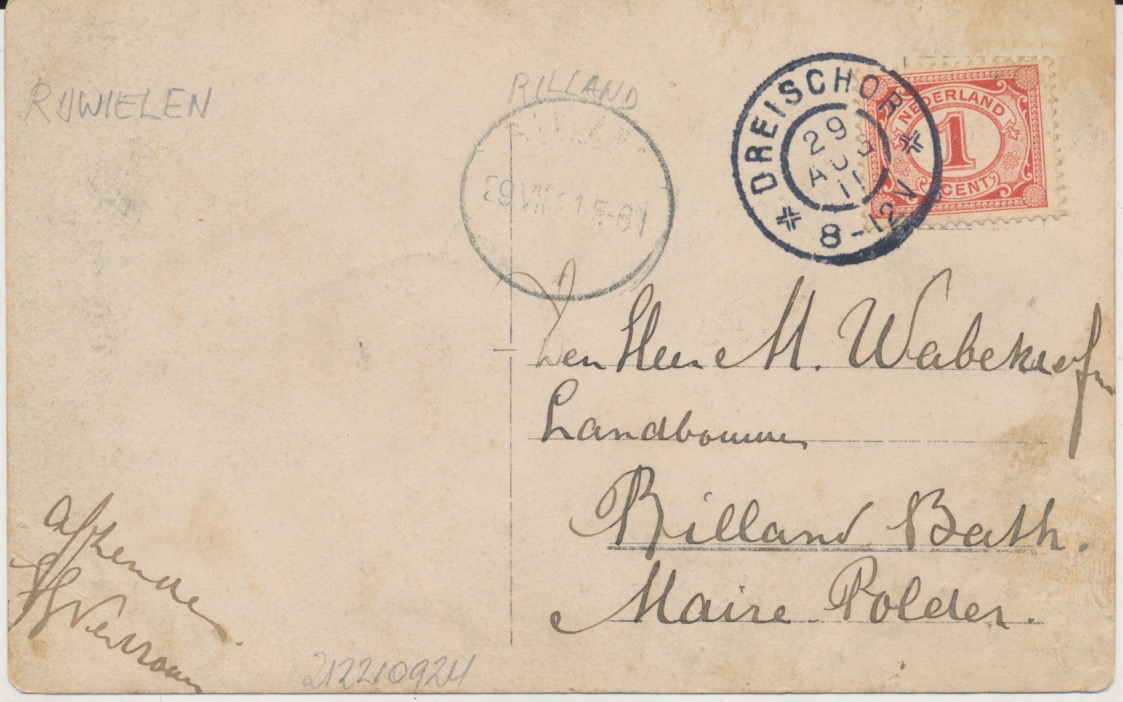 RIJWIELEN
RILLAND
DREISCHOR
29
AUG
11
8-12V
NEDERLAND
1
CENT
Den Heer M. Wabeke
Landbouwer
Rilland Bath.
Maire Polder.
afzender
212210924